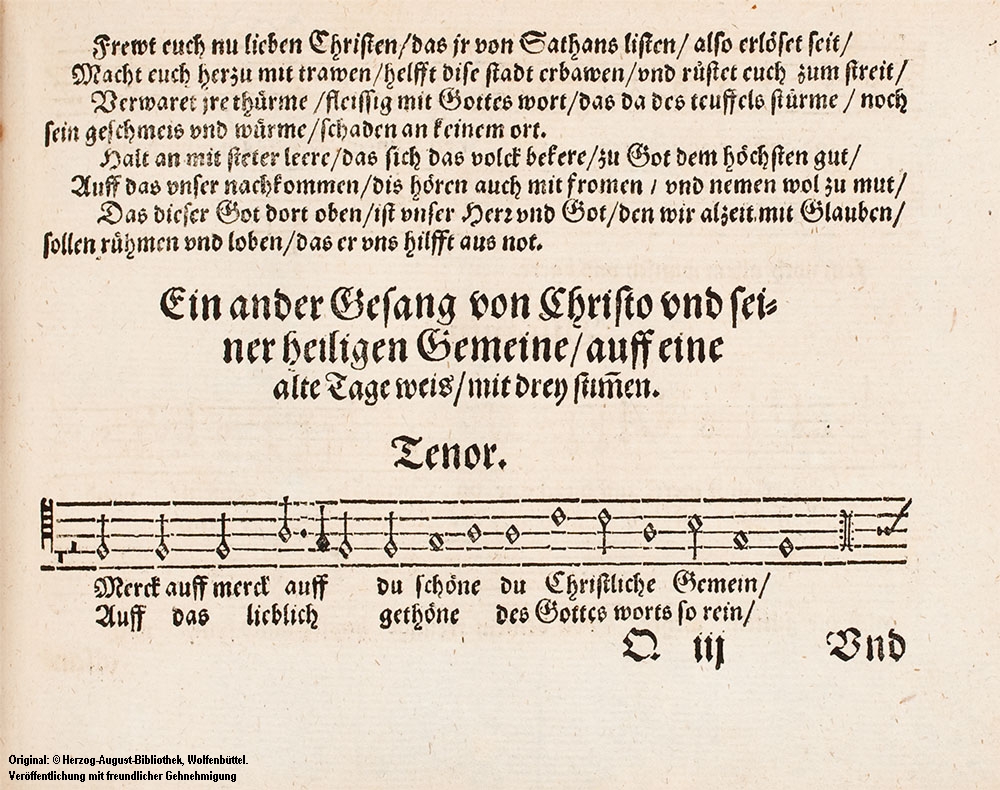 Frewt euch nu lieben Christen/das jr von Sathans listen/ also erlöset seit/
Macht euch herzu mit trawen/helfft dise stadt erbawen/vnd rüstet euch zum streit/
Verwaret jre thürme /fleissig mit Gottes wort/das da des teuffels stürme / noch
sein geschmeis vnd würme/schaden an keinem ort.
Halt an mit steter leere/das sich das volck bekere/zu Got dem höchsten gut/
Auff das vnser nachkommen/dis hören auch mit fromen / vnd nemen wol zu mut/
Das dieser Got dort oben/ist vnser Herr vnd Got/den wir alzeit mit Glauben/
sollen rühmen vnd loben/das er vns hilfft aus not.
Ein ander Gesang von Christo vnd sei=
ner heiligen Gemeine/auff eine
alte Tage weis/mit drey stim̄en.
Tenor.
Merck auff merck auff du schöne du Christliche Gemein/
Auff das lieblich gethöne des Gottes worts so rein/
O iij Vnd
Original: © Herzog-August-Bibliothek, Wolfenbüttel.
Veröffentlichung mit freundlicher Gehnehmigung